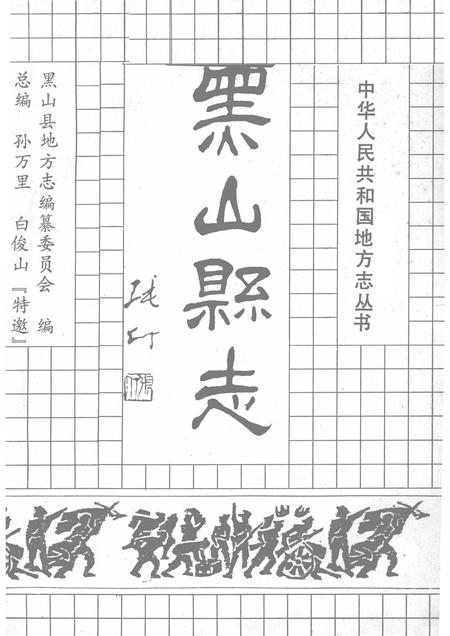 中华人民共和国地方志丛书
黑山縣志
张仃
黑山县地方志编纂委员会 编
总编 孙万里 白俊山『特邀』